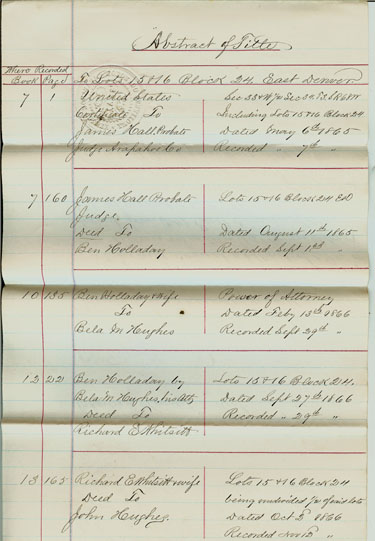 Abstract of Title
Where Recorded
Book Page
To Lots 15 & 16 Block 24, East Denver
7 1 United States
Certificate To Including Lots 15 & 16 Block 24
James Hall Probate Dated May 6th 1865
Judge Arapahoe Co Recorded " 7th "
7 160 James Hall Probate Lots 15 & 16 Block 24 ED
Judge.
Deed To Dated August 11th 1865
Ben Holladay Recorded Sept 1st "
10 135 Ben Holladay & wife Power of Attorney
To Dated Feby 13th 1866
Bela M Hughes Recorded Sept 29th "
12 212 Ben Holladay by Lots 15 & 16 Block 24.
Bela M Hughes, his Atty Dated Sept 27th 1866
Deed To Recorded " 29th "
Richard E Whitsitt
13 165 Richard E Whitsitt & wife Lots 15 & 16 Block 24
Deed To being undivided of said lots
John Hughes. Dated Oct 2d 1866
Recorded Nov 12 "